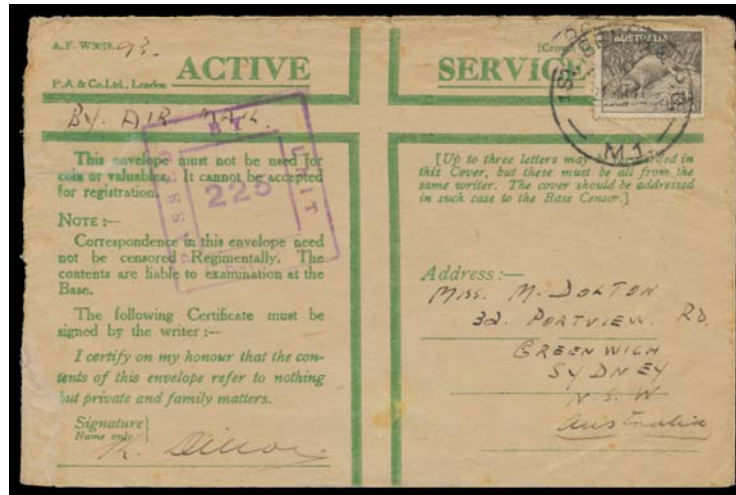 A.F. W3078. 93.
P.A. & Co. Ltd., London
ACTIVE
BY. AIR MAIL.
PASSED BY UNIT
225
This envelope must not be used for
coin or valuables. It cannot be accepted
for registration.
NOTE :—
Correspondence in this envelope need
not be censored Regimentally. The
contents are liable to examination at the
Base.
The following Certificate must be
signed by the writer :—
I certify on my honour that the con-
tents of this envelope refer to nothing
but private and family matters.
Signature
Name only
[Crown
SERVICE
AUSTRALIA
M.1.
[Up to three letters may be forwarded in
this Cover, but these must be all from the
same writer. The cover should be addressed
in such case to the Base Censor.]
Address :—
MISS. M. DOLTON
32. PORTVIEW. RD.
GREENWICH
SYDNEY
N.S.W
Australia